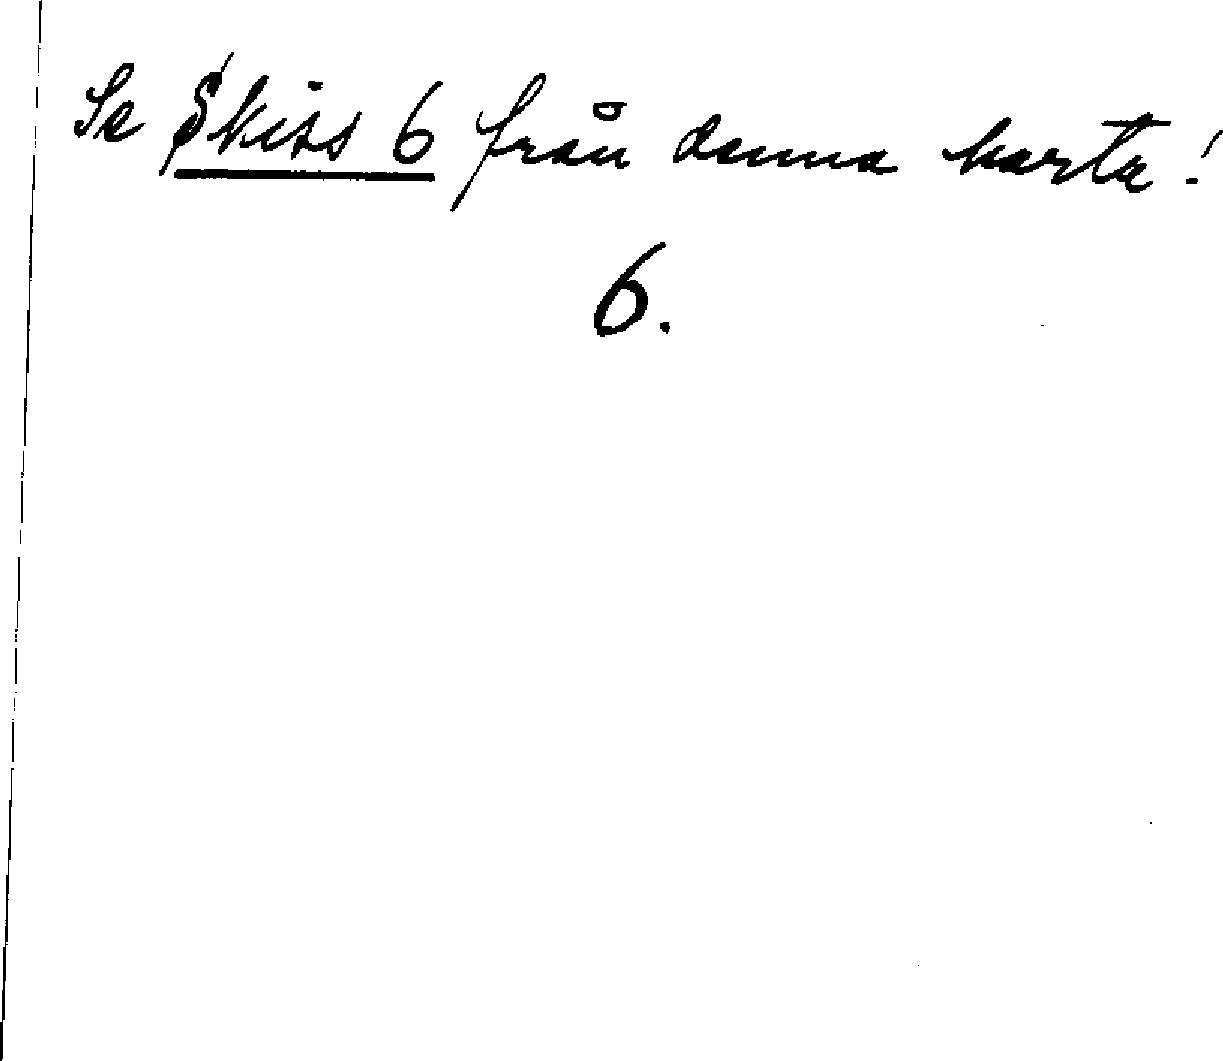 Se Skiss 6 från denna karta!
6.